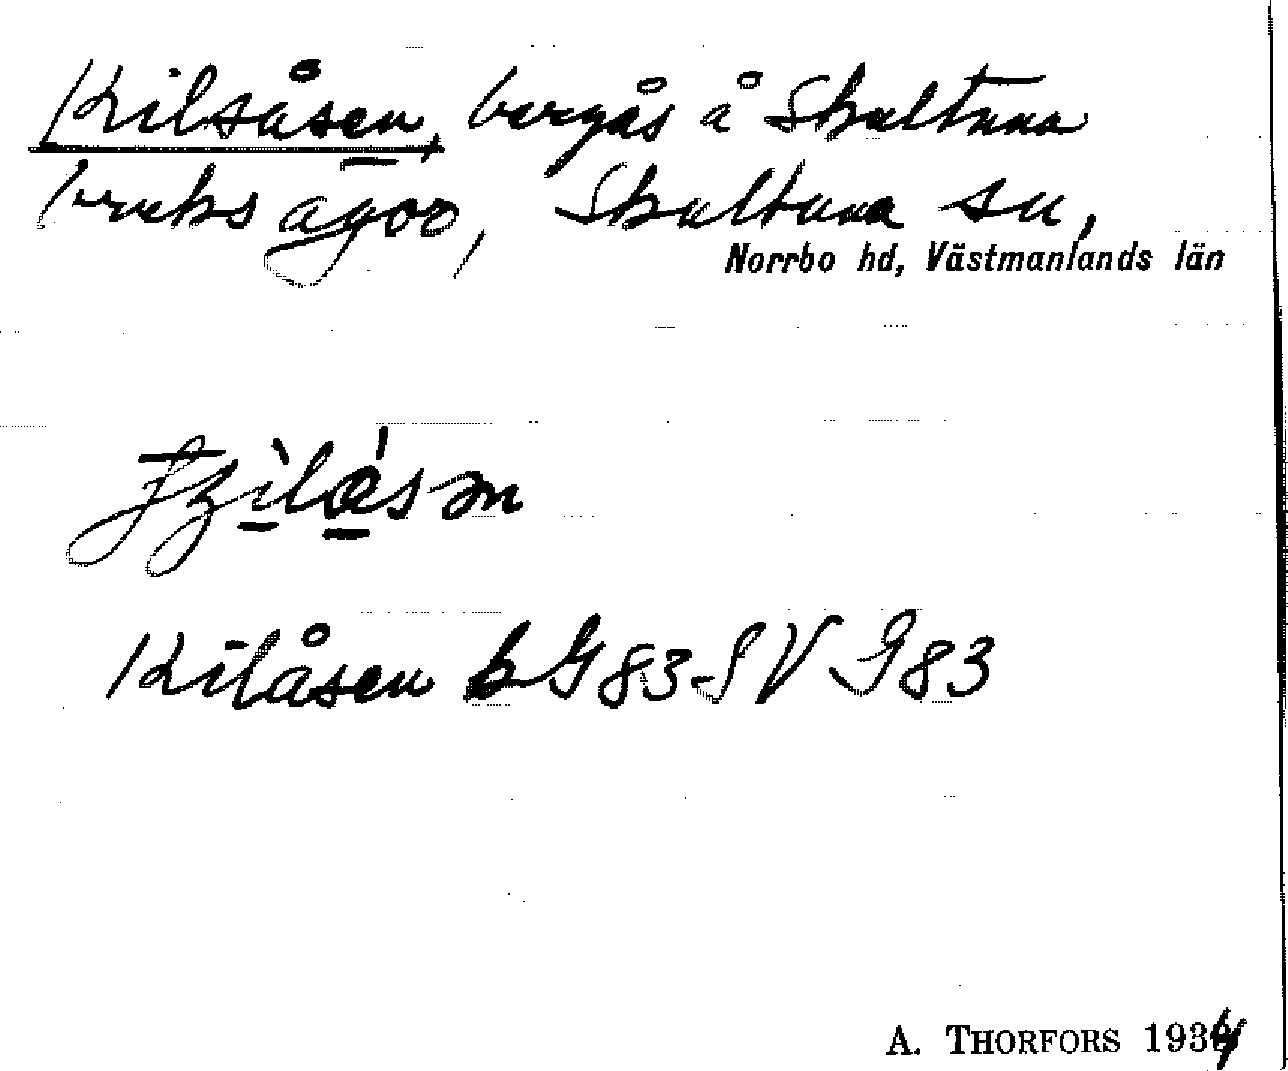 Kilsåsen, bergås å Skultuna
bruks ägoo, Skultuna sn,
Norrbo hd, Västmanlands län
Kilåsen b G83-SV G83
A. THORFORS 1934